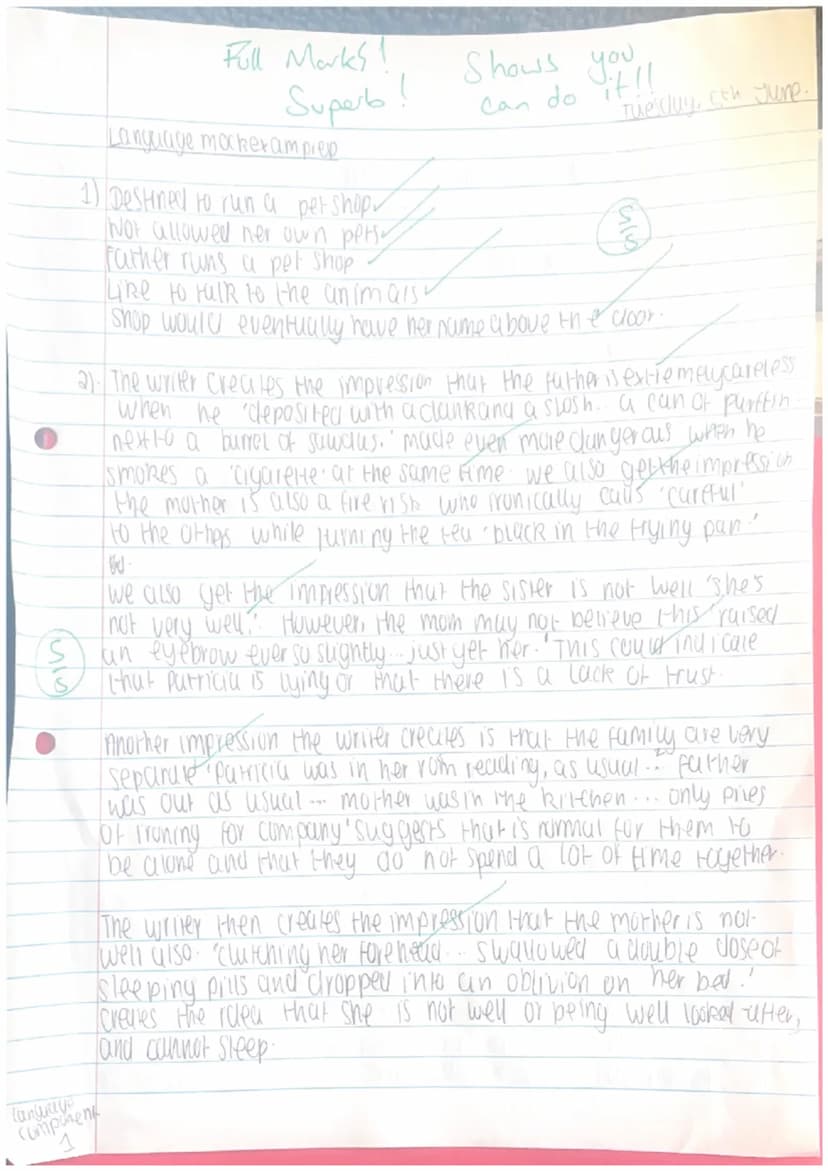 Full Marks! Shows you
Superb! can do it!!
Tuesday, 6th June.
Language mock exam prep
1) Destined to run a pet shop
Not allowed her own pets
Father runs a pet shop
5/5
Like to talk to the animals
Shop would eventually have her name above the door.
2). The writer creates the impression that the father is extremely careless
when he 'deposited with a clank and a slosh.. a can of
next to a barrel of sawdus.' made even more dangerous when he
smokes a 'cigarette' at the same time. we also get the impression
the mother is also a fire risk who ironically calls 'careful'
to the others while turning the tea 'black in the frying pan.'
we also get the impression that the sister is not well 'she's
not very well.' However, the mom may not believe this 'raised
an eyebrow ever so slightly... just yet her.' This could indicate
5/5
that Patricia is lying or that there is a lack of trust.
Another impression the writer creates is that the family are very
separate 'patricia was in her room reading, as usual... father
was out as usual... mother was in the kitchen... only piles
of ironing for company' suggests that is normal for them to
be alone and that they do not spend a lot of time together.
The writer then creates the impression that the mother is not
well also. 'clutching her forehead... swallowed a double dose of
sleeping pills and dropped into an oblivion on her bed.'
creates the idea that she is not well or being well looked after,
and cannot sleep.
language
component
1